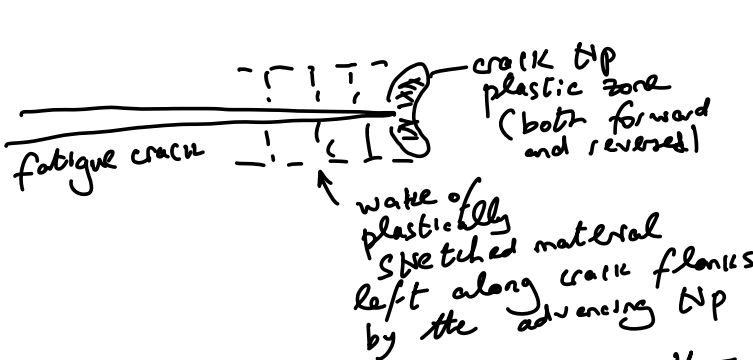 crack tip
plastic zone
(both forward
and reversed)
fatigue crack
wake of
plastically
stretched material
left along crack flanks
by the advancing tip